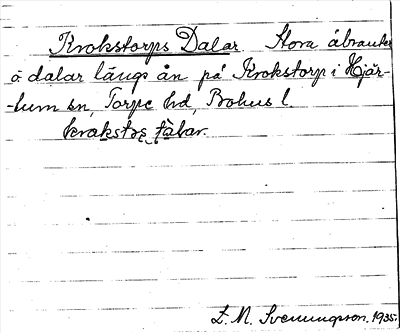 Krokstorps Dalar. Stora åbranter
å dalar längs ån på Krokstorp i Hjär-
-tum sn, Torpe hd, Bohus l
kråkstɔs dàlar.
S. M. Svenungsson. 1935.